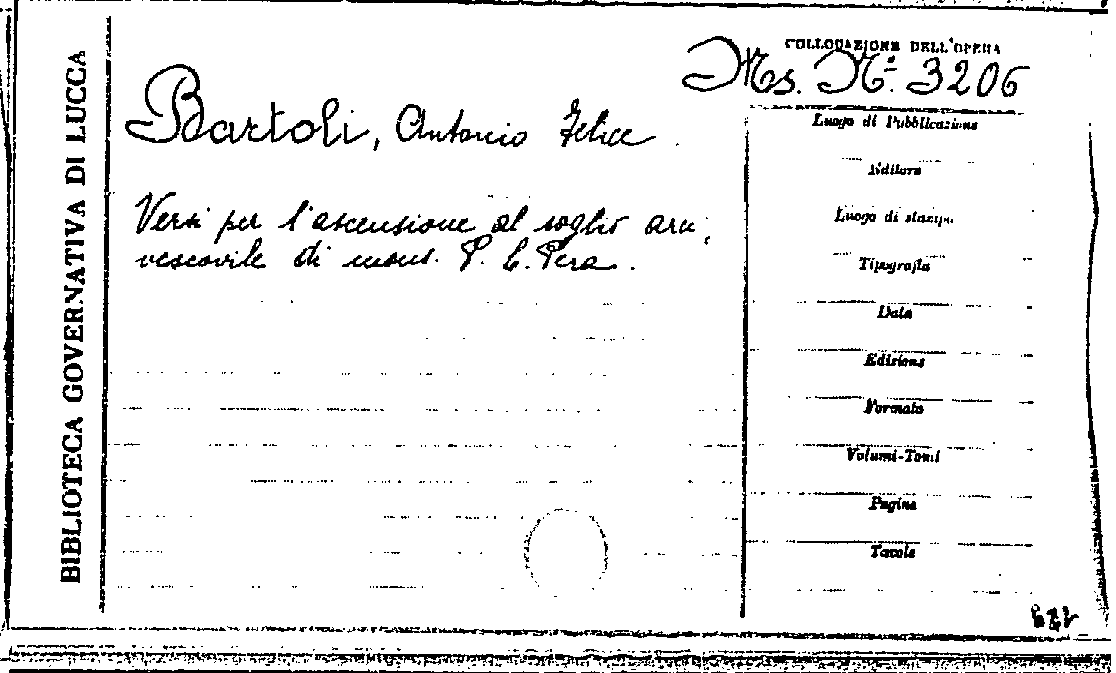 BIBLIOTECA GOVERNATIVA DI LUCCA
COLLOCAZIONE DELL'OPERA
Ms. Nº. 3206
Bartoli, Antonio Felice
Versi per l'ascensione al soglio arci,
vescovile di mons. P. L. Pera.
Luogo di Pubblicazione
Editore
Luogo di stampa
Tipografia
Data
Edizione
Formato
Volumi-Tomi
Pagine
Tavole